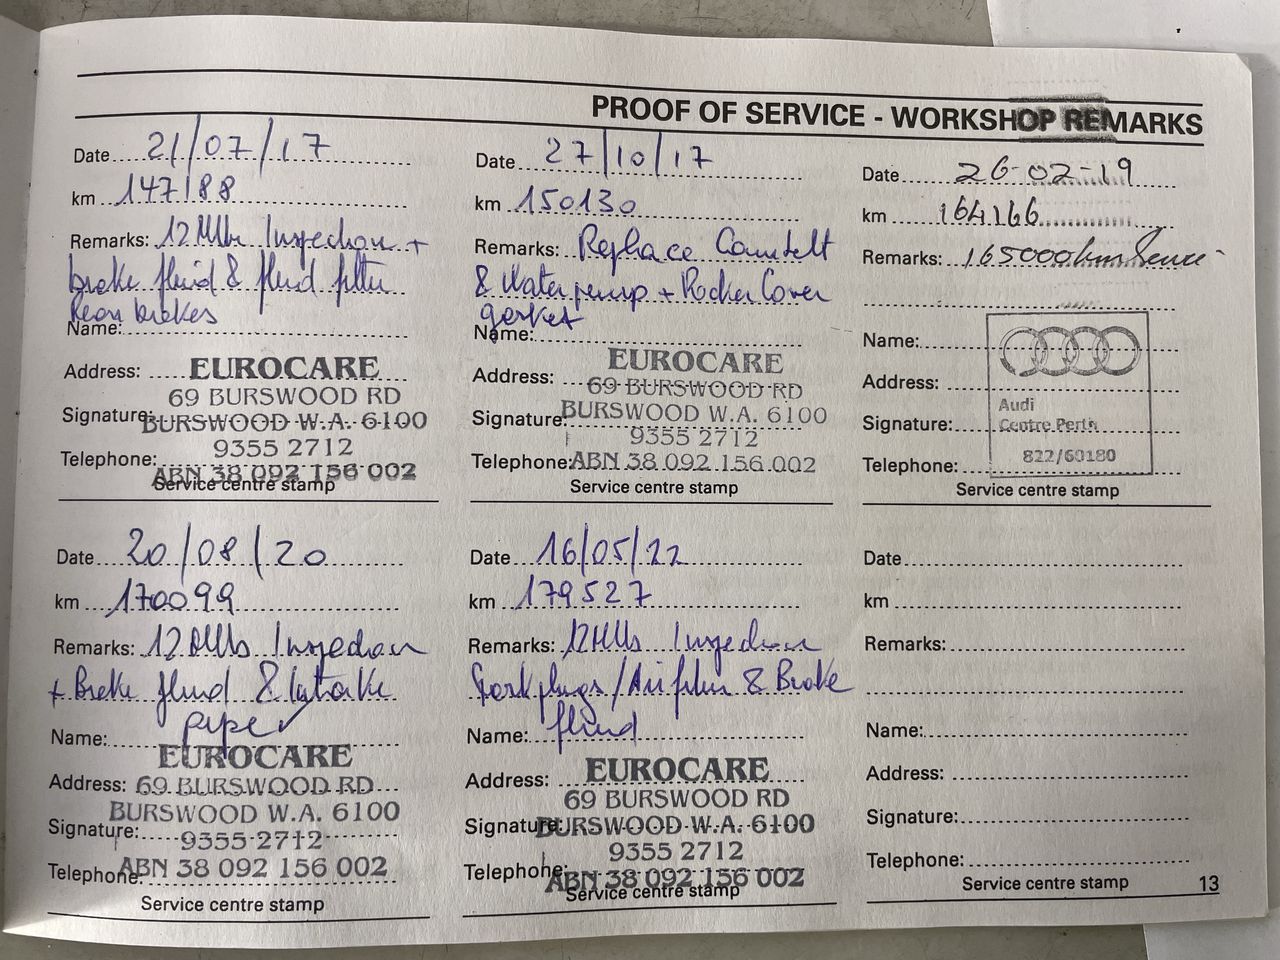 PROOF OF SERVICE - WORKSHOP REMARKS
Date 21/07/17
km 147188
Remarks: 12 Mths Inspection +
brake fluid & fluid filter
Rear brakes
Name:
Address: EUROCARE
69 BURSWOOD RD
Signature: BURSWOOD W.A. 6100
9355 2712
Telephone: ABN 38 092 156 002
Service centre stamp
Date 27/10/17
km 150130
Remarks: Replace Cambelt
& Waterpump + Rocker Cover
gasket
Name:
EUROCARE
Address: 69 BURSWOOD RD
Signature: BURSWOOD W.A. 6100
9355 2712
Telephone: ABN 38 092 156 002
Service centre stamp
Date 26-02-19
km 164166
Remarks: 165000km Service
Name:
Address:
Audi
Signature: Centre Perth
822/60180
Telephone:
Service centre stamp
Date 20/08/20
km 170099
Remarks: 12 Mths Inspection
+ Brake fluid & Intake
pipe
Name:
EUROCARE
Address: 69 BURSWOOD RD
BURSWOOD W.A. 6100
Signature: 9355 2712
Telephone: ABN 38 092 156 002
Service centre stamp
Date 16/05/22
km 179527
Remarks: 12 Mths Inspection
Spark plugs / Air filter & Brake
Name: fluid
Address: EUROCARE
69 BURSWOOD RD
Signature: BURSWOOD W.A. 6100
9355 2712
Telephone: ABN 38 092 156 002
Service centre stamp
Date
km
Remarks:
Name:
Address:
Signature:
Telephone:
Service centre stamp
13